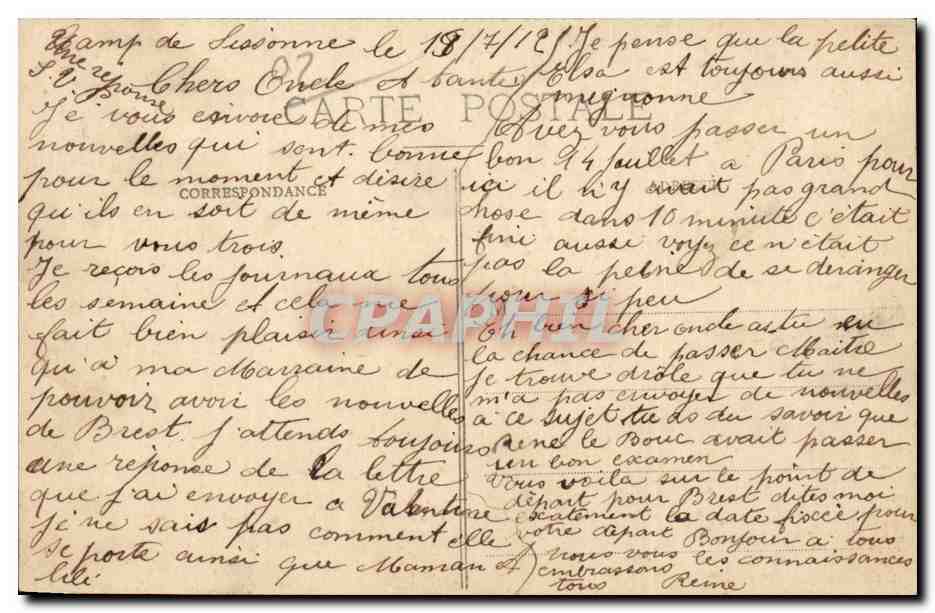 Camp de Sissonne le 18/7/12
une reponse
S. V.
Chers Oncle et tante
CARTE POSTALE
CORRESPONDANCE
Je vous envoie de mes
nouvelles qui sont bonne
pour le moment et désire
qu'ils en soit de même
pour vous trois
Je reçois les journaux tous
les semaine et cela me
fait bien plaisir ainsi
qu'a ma Marraine de
pouvoir avoir les nouvelles
de Brest j'attends toujours
une reponse de la lettre
que j'ai envoyer a Valentine
je ne sais pas comment elle
se porte ainsi que Maman et
lili
Je pense que la petite
Elsa est toujours aussi
mignonne
Avez vous passer un
bon 14 Juillet a Paris pour
ici il n'y avait pas grand
chose dans 10 minute c'était
fini aussi voyez ce n'était
pas la peine de se deranger
pour si peu
Eh bien cher oncle as tu eu
la chance de passer Maitre
je trouve drôle que tu ne
m'a pas envoyer de nouvelles
a ce sujet tu as du savoir que
Rene le Bouc avait passer
un bon examen
Vous voila sur le point de
départ pour Brest dites moi
exatement la date fixée pour
votre départ Bonjour a tous
les connaissances
nous vous
embrassons
tous Reine
CPAPHIL